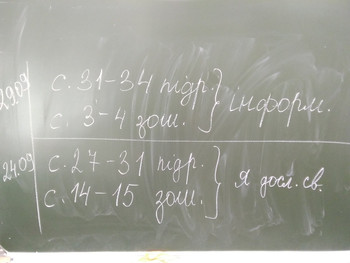 29.09 с. 31-34 підр. } інформ.
с. 3-4 зош.
24.09 с. 27-31 підр. } я досл. св.
с. 14-15 зош.